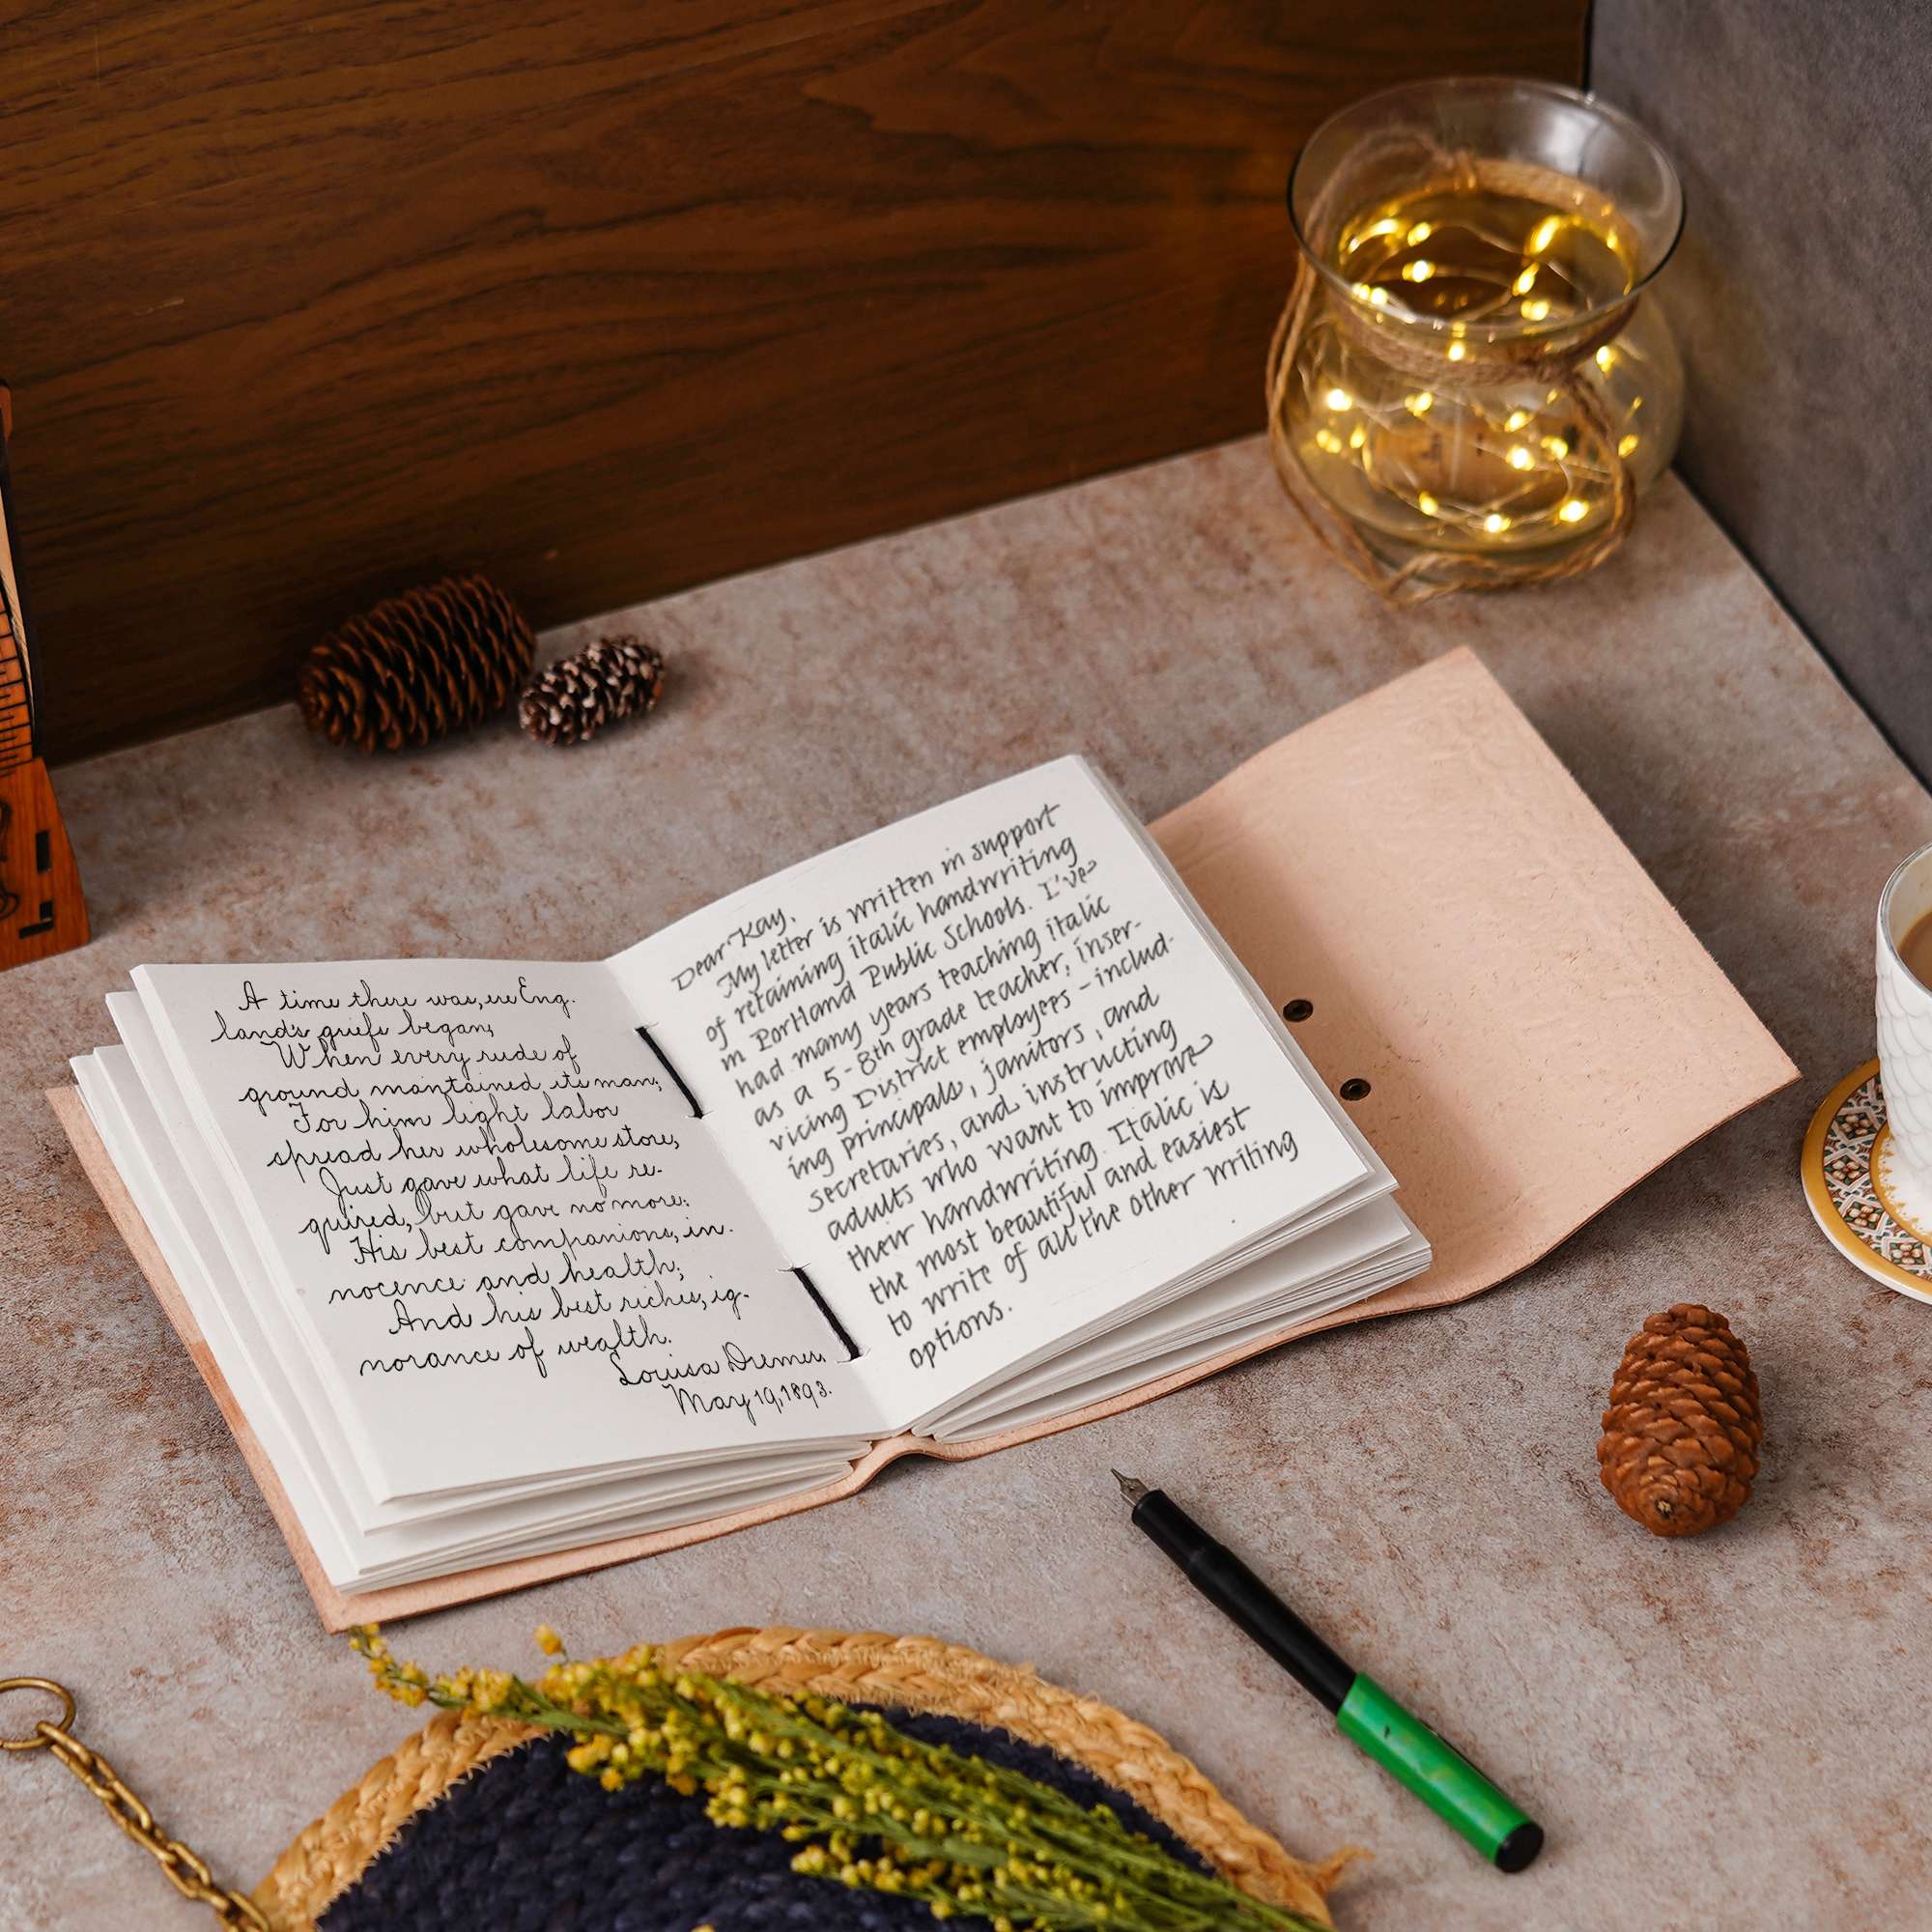 A time there was, ere Eng-
land's griefs began,
When every rude of
ground mantained its man;
For him light labor
spread her wholesome store,
Just gave what life re-
quired, but gave no more:
His best companions, in-
nocence and health;
And his best riches, ig-
norance of wealth.
Louisa
May 19, 1893.
Dear Kay,
My letter is written in support
of retaining italic handwriting
in Portland Public Schools. I've
had many years teaching italic
as a 5-8th grade teacher, inser-
vicing District employees - includ-
ing principals, janitors, and
secretaries, and instructing
adults who want to improve
their handwriting. Italic is
the most beautiful and easiest
to write of all the other writing
options.